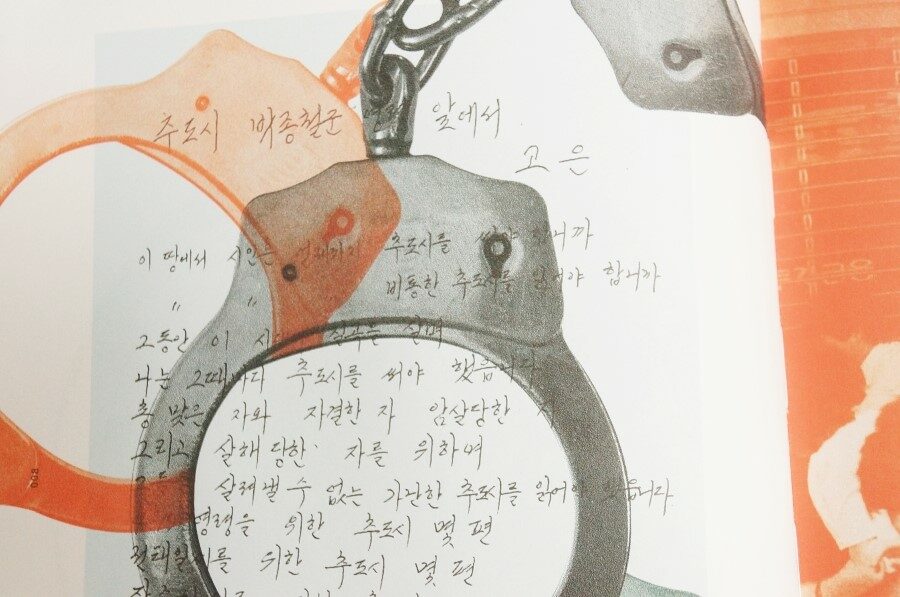 추도시 박종철군 앞에서
고은
이 땅에서 시인은 언제까지 추도시를 써야 합니까
〃 〃 〃 비통한 추도시를 읽어야 합니까
그동안 이 시대 살며
나는 그때마다 추도시를 써야 했습니다
총 맞은 자와 자결한 자 암살당한 자
그리고 살해 당한 자를 위하여
살려낼 수 없는 가난한 추도시를 읽어야 했습니다
영령을 위한 추도시 몇 편
전태일 위한 추도시 몇 편
008